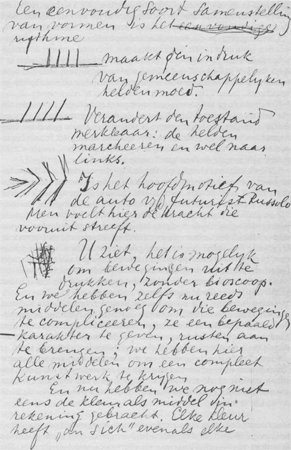 Een eenvoudig soort samenstelling
van vormen is het eenvoudige
rythme
maakt g'in indruk
van gemeenschappelyken
heldenmoed.
Verandert den toestand
merkbaar: de helden
marcheeren en wel naar
links.
Is het hoofdmotief van
de auto v/d futurist Russolo
Men voelt hier de kracht die
vooruit streeft.
U ziet, het is mogelyk
om bewegingen uit te
drukken, zonder bioscoop.
En we hebben zelfs nu reeds
middelen genoeg om die beweging
te compliceeren, ze een bepaald
karakter te geven, rusten aan
te brengen; we hebben hier
alle middelen om een compleet
kunstwerk te krygen
En nu hebben we nog niet
eens de kleur als middel in
rekening gebracht. Elke kleur
heeft „an sich” evenals elke